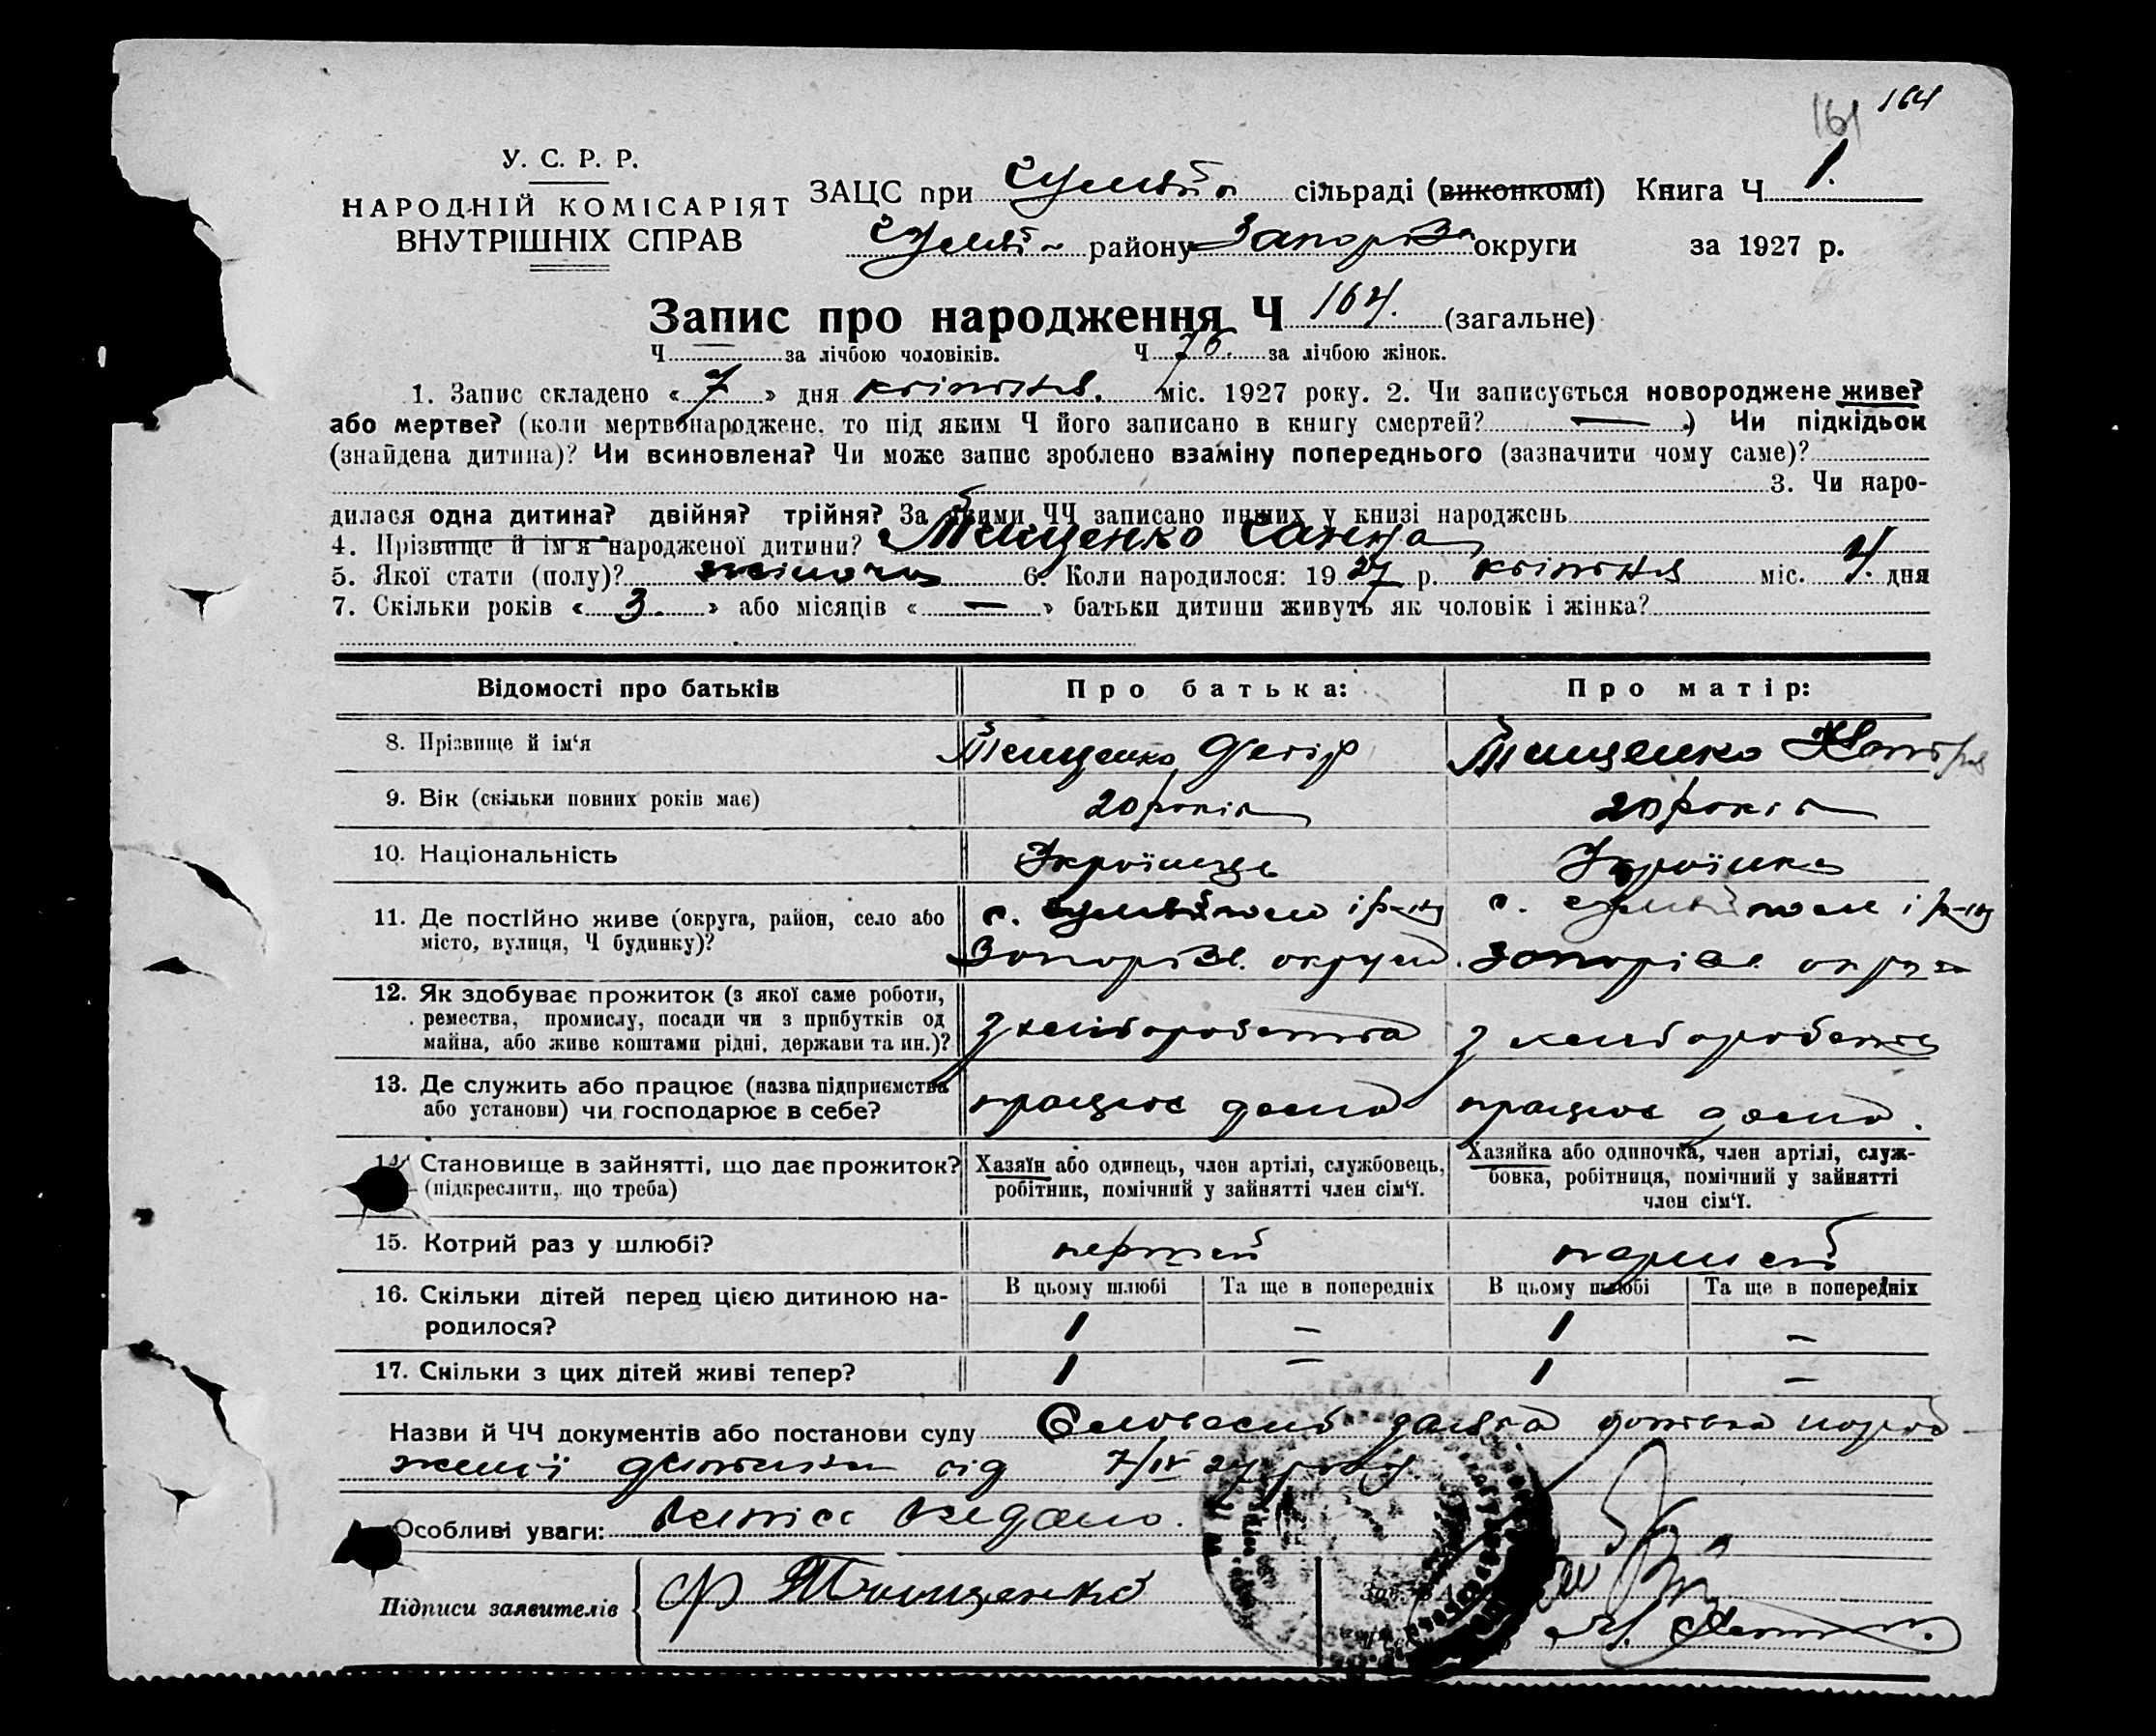 161 164
У. С. Р. Р.
НАРОДНІЙ КОМІСАРІЯТ
ВНУТРІШНІХ СПРАВ
ЗАЦС при сільраді (виконкомі) Книга Ч 1.
району Запоріз округи за 1927 р.
Запис про народження Ч 164. (загальне)
Ч — за лічбою чоловіків. Ч 76. за лічбою жінок.
1. Запис складено «7» дня квітня. міс. 1927 року. 2. Чи записується новороджене живе?
або мертве? (коли мертвонароджене, то під яким Ч його записано в книгу смертей? — ) Чи підкідьок
(знайдена дитина)? Чи всиновлена? Чи може запис зроблено взаміну попереднього (зазначити чому саме)?
3. Чи наро-
дилася одна дитина? двійня? трійня? За якими ЧЧ записано инших у книзі народжень
4. Прізвище й ім'я народженої дитини? Тищенко Ганна
5. Якої стати (полу)? жіноча 6. Коли народилося: 1927 р. квітня міс. 4. дня
7. Скільки років «3.» або місяців «—» батьки дитини живуть як чоловік і жінка?
Відомості про батьків Про батька: Про матір:
8. Прізвище й ім'я Тищенко Федір Тищенко
9. Вік (скільки повних років має) 20 років 20 років
10. Національність Українець Українка
11. Де постійно живе (округа, район, село або с. і р-ну с. і р-ну
місто, вулиця, Ч будинку)? Запорізь. округи. Запорізь. округи
12. Як здобуває прожиток (з якої саме роботи,
ремества, промислу, посади чи з прибутків од з хліборобства з хліборобства
майна, або живе коштами рідні, держави та ин.)?
13. Де служить або працює (назва підприємства
або установи) чи господарює в себе? працює дома працює дома.
14. Становище в зайнятті, що дає прожиток? Хазяїн або одинець, член артілі, службовець, Хазяйка або одиночка, член артілі, служ-
(підкреслити, що треба) робітник, помічний у зайнятті член сім'ї. бовка, робітниця, помічний у зайнятті
член сім'ї.
15. Котрий раз у шлюбі? перший перший
16. Скільки дітей перед цією дитиною на- В цьому шлюбі Та ще в попередніх В цьому шлюбі Та ще в попередніх
родилося? 1 — 1 —
17. Скільки з цих дітей живі тепер? 1 — 1 —
Назви й ЧЧ документів або постанови суду Словесна заява батька народ-
женої дитини від 7/IV 27 року.
Особливі уваги: Витяг видано.
Підписи заявителів Ф Тищенко